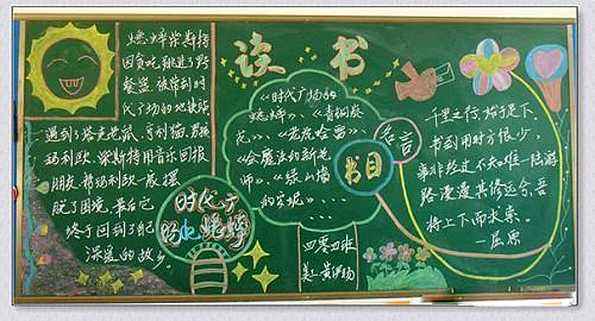 读书
蟋蟀柴斯特
因贪吃,跳进了野
餐篮,被带到时
代广场的地铁站
遇到了塔克老鼠、亨利猫、男孩
玛利欧,柴斯特用音乐回报
朋友,帮玛利欧一家摆
脱了困境,最后它
终于回到了自己
深爱的故乡。
时代广
场的蟋蟀
《时代广场的
蟋蟀》、《青铜葵
花》、
《会魔法的新老
师》、《绿山墙
的安妮》...
...
书目
四零四班
名言
千里之行,始于足下。
书到用时方恨少,
事非经过不知难—陆游
路漫漫其修远兮,吾
将上下而求索。
—屈原